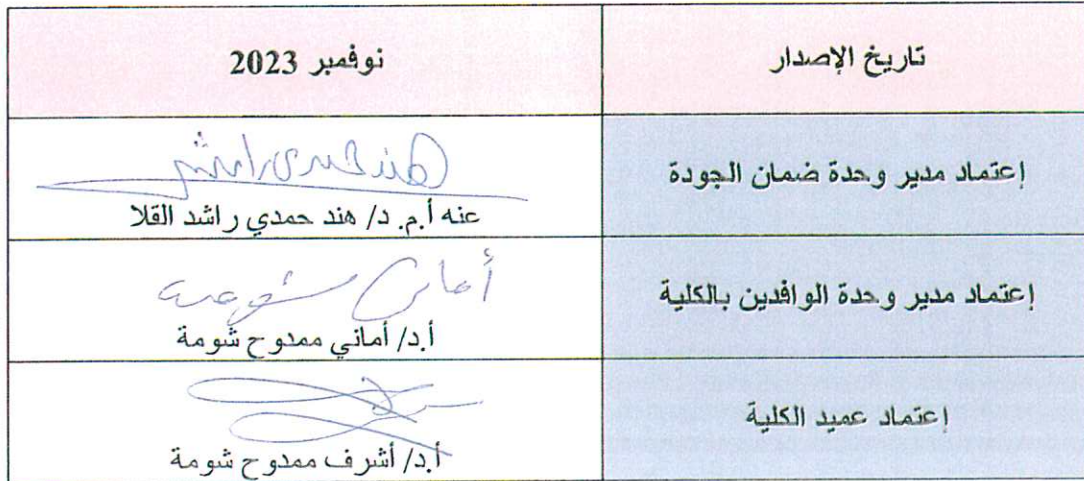 تاريخ الإصدار
نوفمبر 2023
إعتماد مدير وحدة ضمان الجودة
هند حمدى راشد
عنه أ.م. د/ هند حمدي راشد القلا
إعتماد مدير وحدة الوافدين بالكلية
أ.د/ أماني ممدوح شومة
إعتماد عميد الكلية
أ.د/ أشرف ممدوح شومة